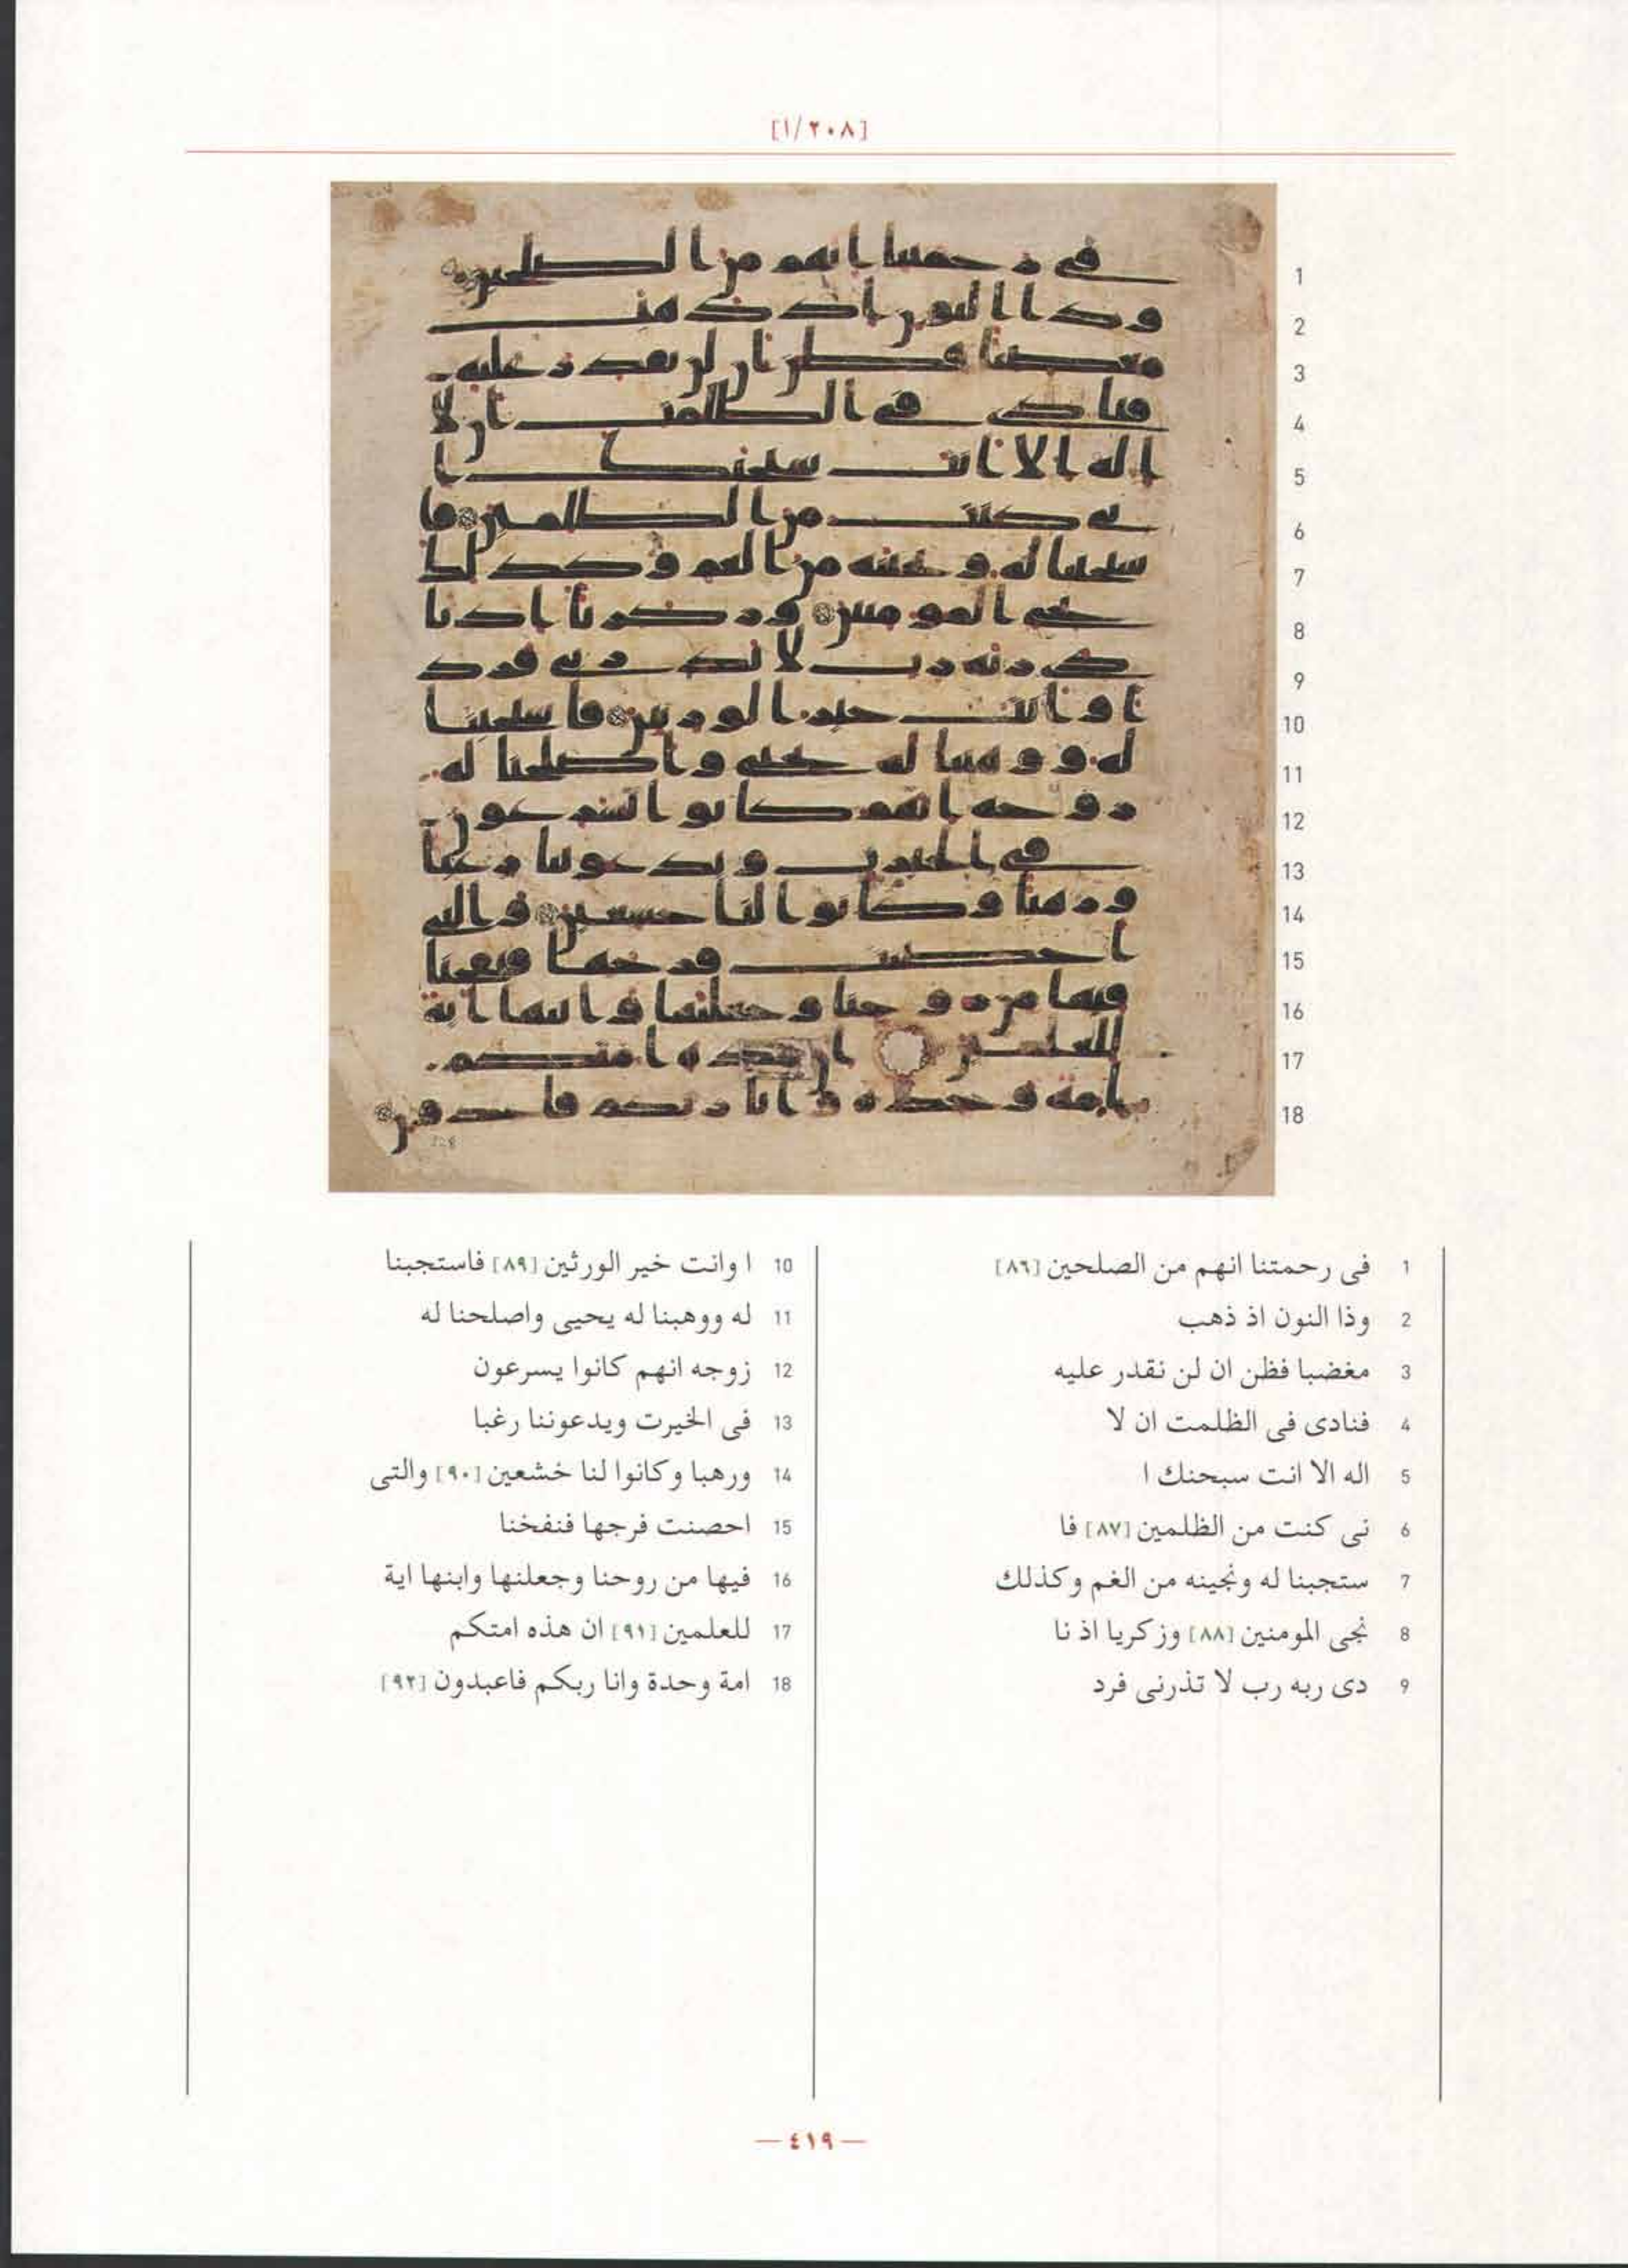 [١/٢٠٨]
1 فى رحمتنا انهم من الصلحين [٨٦]
2 وذا النون اذ ذهب
3 مغضبا فظن ان لن نقدر عليه
4 فنادى فى الظلمت ان لا
5 اله الا انت سبحنك ا
6 نى كنت من الظلمين [٨٧] فا
7 ستجبنا له ونجينه من الغم وكذلك
8 نجى المومنين [٨٨] وزكريا اذ نا
9 دى ربه رب لا تذرنى فرد
10 ا وانت خير الورثين [٨٩] فاستجبنا
11 له ووهبنا له يحيى واصلحنا له
12 زوجه انهم كانوا يسرعون
13 فى الخيرت ويدعوننا رغبا
14 ورهبا وكانوا لنا خشعين [٩٠] والتى
15 احصنت فرجها فنفخنا
16 فيها من روحنا وجعلنها وابنها اية
17 للعلمين [٩١] ان هذه امتكم
18 امة وحدة وانا ربكم فاعبدون [٩٢]
— ٤١٩ —